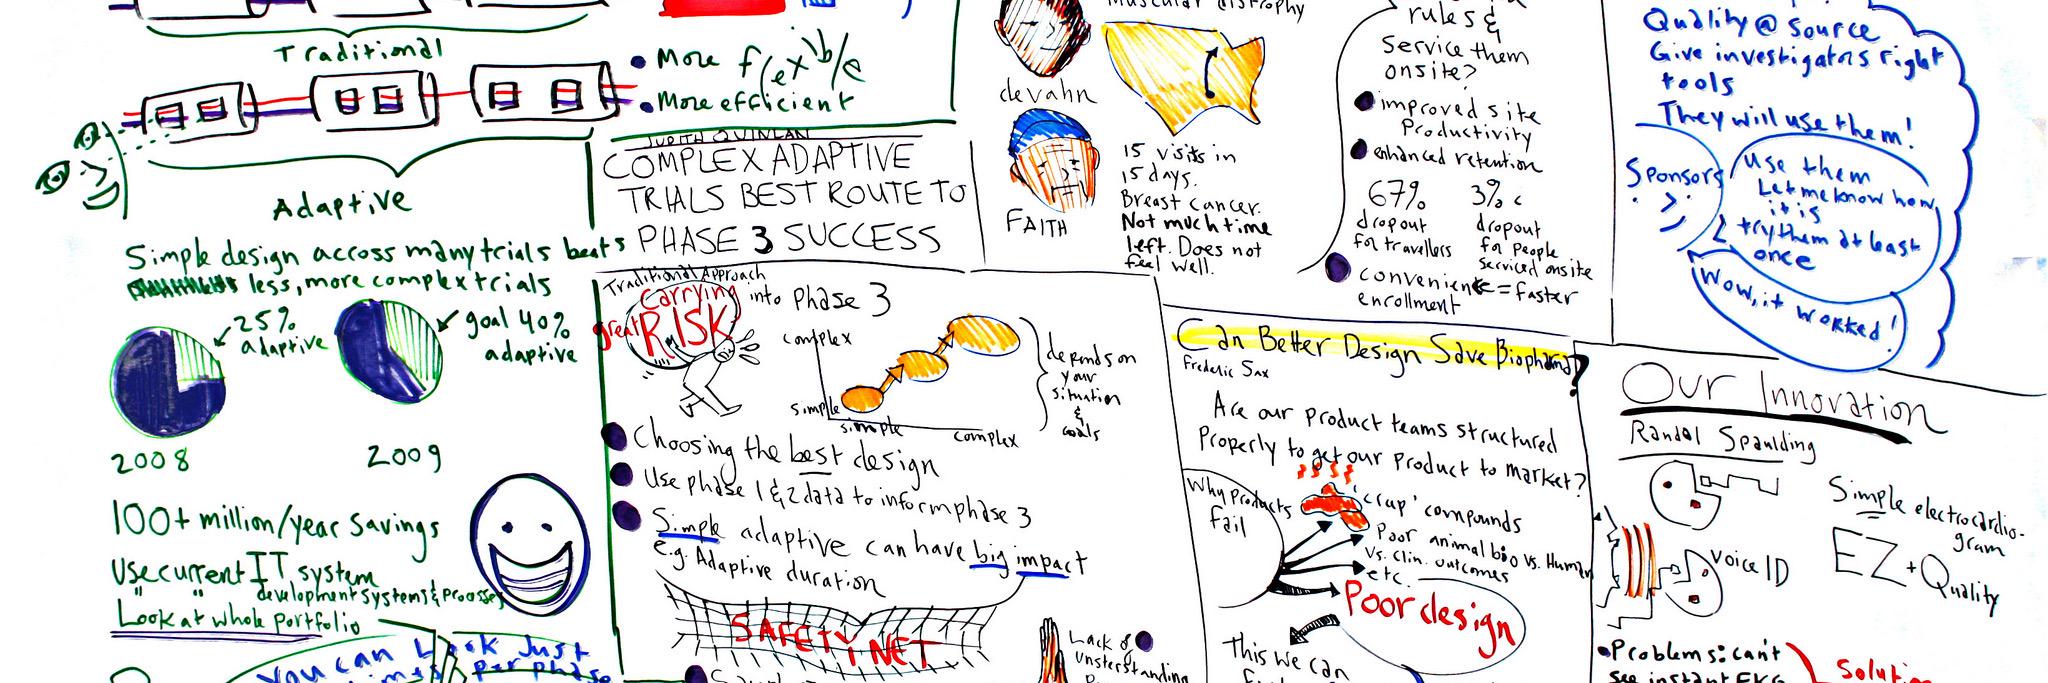 Traditional
• More flexible
• More efficient
Adaptive
Simple design across many trials beats
less, more complex trials
25%
adaptive
goal 40%
adaptive
2008
2009
100+ million/year savings
Use current IT system
" " development systems & processes
Look at whole portfolio
you can Look Just
per phase
JUDITH QUINLAN
COMPLEX ADAPTIVE
TRIALS BEST ROUTE TO
PHASE 3 SUCCESS
Traditional Approach
Carrying
great RISK
into Phase 3
complex
simple
simple
complex
depends on
your
situation
&
goals
Choosing the best design
Use phase 1 & 2 data to inform phase 3
Simple adaptive can have big impact
e.g. Adaptive duration
SAFETY NET
Lack of
Understanding
Muscular distrophy
devahn
FAITH
15 visits in
15 days.
Breast cancer.
Not much time
left. Does not
feel well.
rules &
Service them
onsite?
improved site
Productivity
enhanced retention
67%
dropout
for travellers
3%
dropout
for people
serviced onsite
convenience = faster
enrollment
Can Better Design Save Biopharma?
Frederic Sax
Are our product teams structured
Properly to get our Product to market?
Why Products
fail
'crap' compounds
Poor animal bio vs. Human
vs. clin. outcomes
etc.
Poor design
This we can
Quality @ Source
Give investigators right
tools
They will use them!
Sponsors
Use them
Let me know how
it is
try them at least
once
Wow, it worked!
Our Innovation
Randal Spaulding
Simple electrocardio-
gram
EZ + Quality
Voice ID
• Problems: can't
see instant EKG
Solution